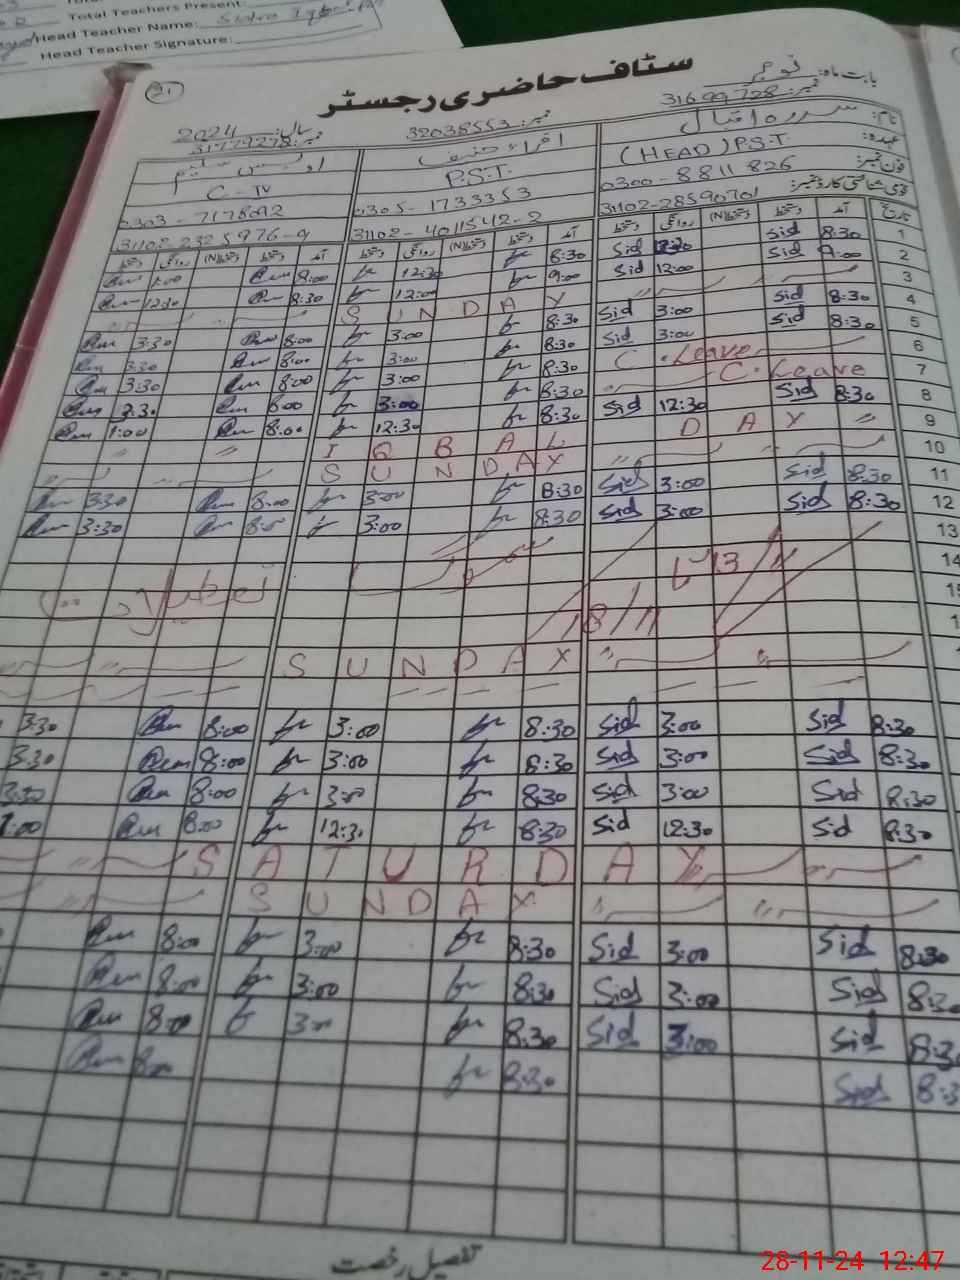 Total Teachers Present:
Head Teacher Name: Sidra Iqbal
Head Teacher Signature:
21
سٹاف حاضری رجسٹر
بابت ماہ: نومبر
سال: 2024
نمبر: 31699728 نمبر: 32038553 نمبر: 31779278
نام: سدرہ اقبال اقراء حنیف اویس سلیم
عہدہ: (HEAD) P.S.T. P.S.T. C-IV
فون نمبر: 0300-8811826 0305-1733353 0303-7178092
قومی شناختی کارڈ نمبر: 31102-2859070 31102-4011542-2 31102-2325976-9
تاریخ آمد دستخط (N)دستخط روانگی دستخط آمد دستخط (N)دستخط روانگی دستخط آمد دستخط (N)دستخط روانگی دستخط
1 8:30 Sid Sid 8:30 12:30 8:00 1:00
2 9:00 Sid 12:00 Sid 9:00 12:00 8:30 12:30
3 SUNDAY
4 8:30 Sid 3:00 Sid 8:30 3:00 8:00 3:30
5 8:30 Sid 3:00 Sid 8:30 3:00 8:00 3:30
6 C. Leave 8:30 3:00 8:00 3:30
7 C. Leave 8:30 3:00 8:00
8 8:30 Sid 12:30 Sid 8:30 12:30 8:00 1:00
9 IQBAL DAY
10 SUNDAY
11 8:30 Sid 3:00 Sid 8:30 3:00 8:00 3:30
12 8:30 Sid 3:00 Sid 8:30 3:00 8:00 3:30
13
14 13/11 تا 18/11 سموگ تعطیلات
SUNDAY
8:30 Sid 3:00 Sid 8:30 3:00 8:00 3:30
8:30 Sid 3:00 Sid 8:30 3:00 8:00 3:30
8:30 Sid 3:00 Sid 8:30 3:00 8:00 3:30
8:30 Sid 12:30 Sid 8:30 12:30 8:00 1:00
SATURDAY
SUNDAY
8:30 Sid 3:00 Sid 8:30 3:00 8:00
8:30 Sid 3:00 Sid 8:30 3:00 8:00
8:30 Sid 3:00 Sid 8:30 3:00 8:00
Sid 8:30 8:00
تفصیل رخصت
28-11-24 12:47